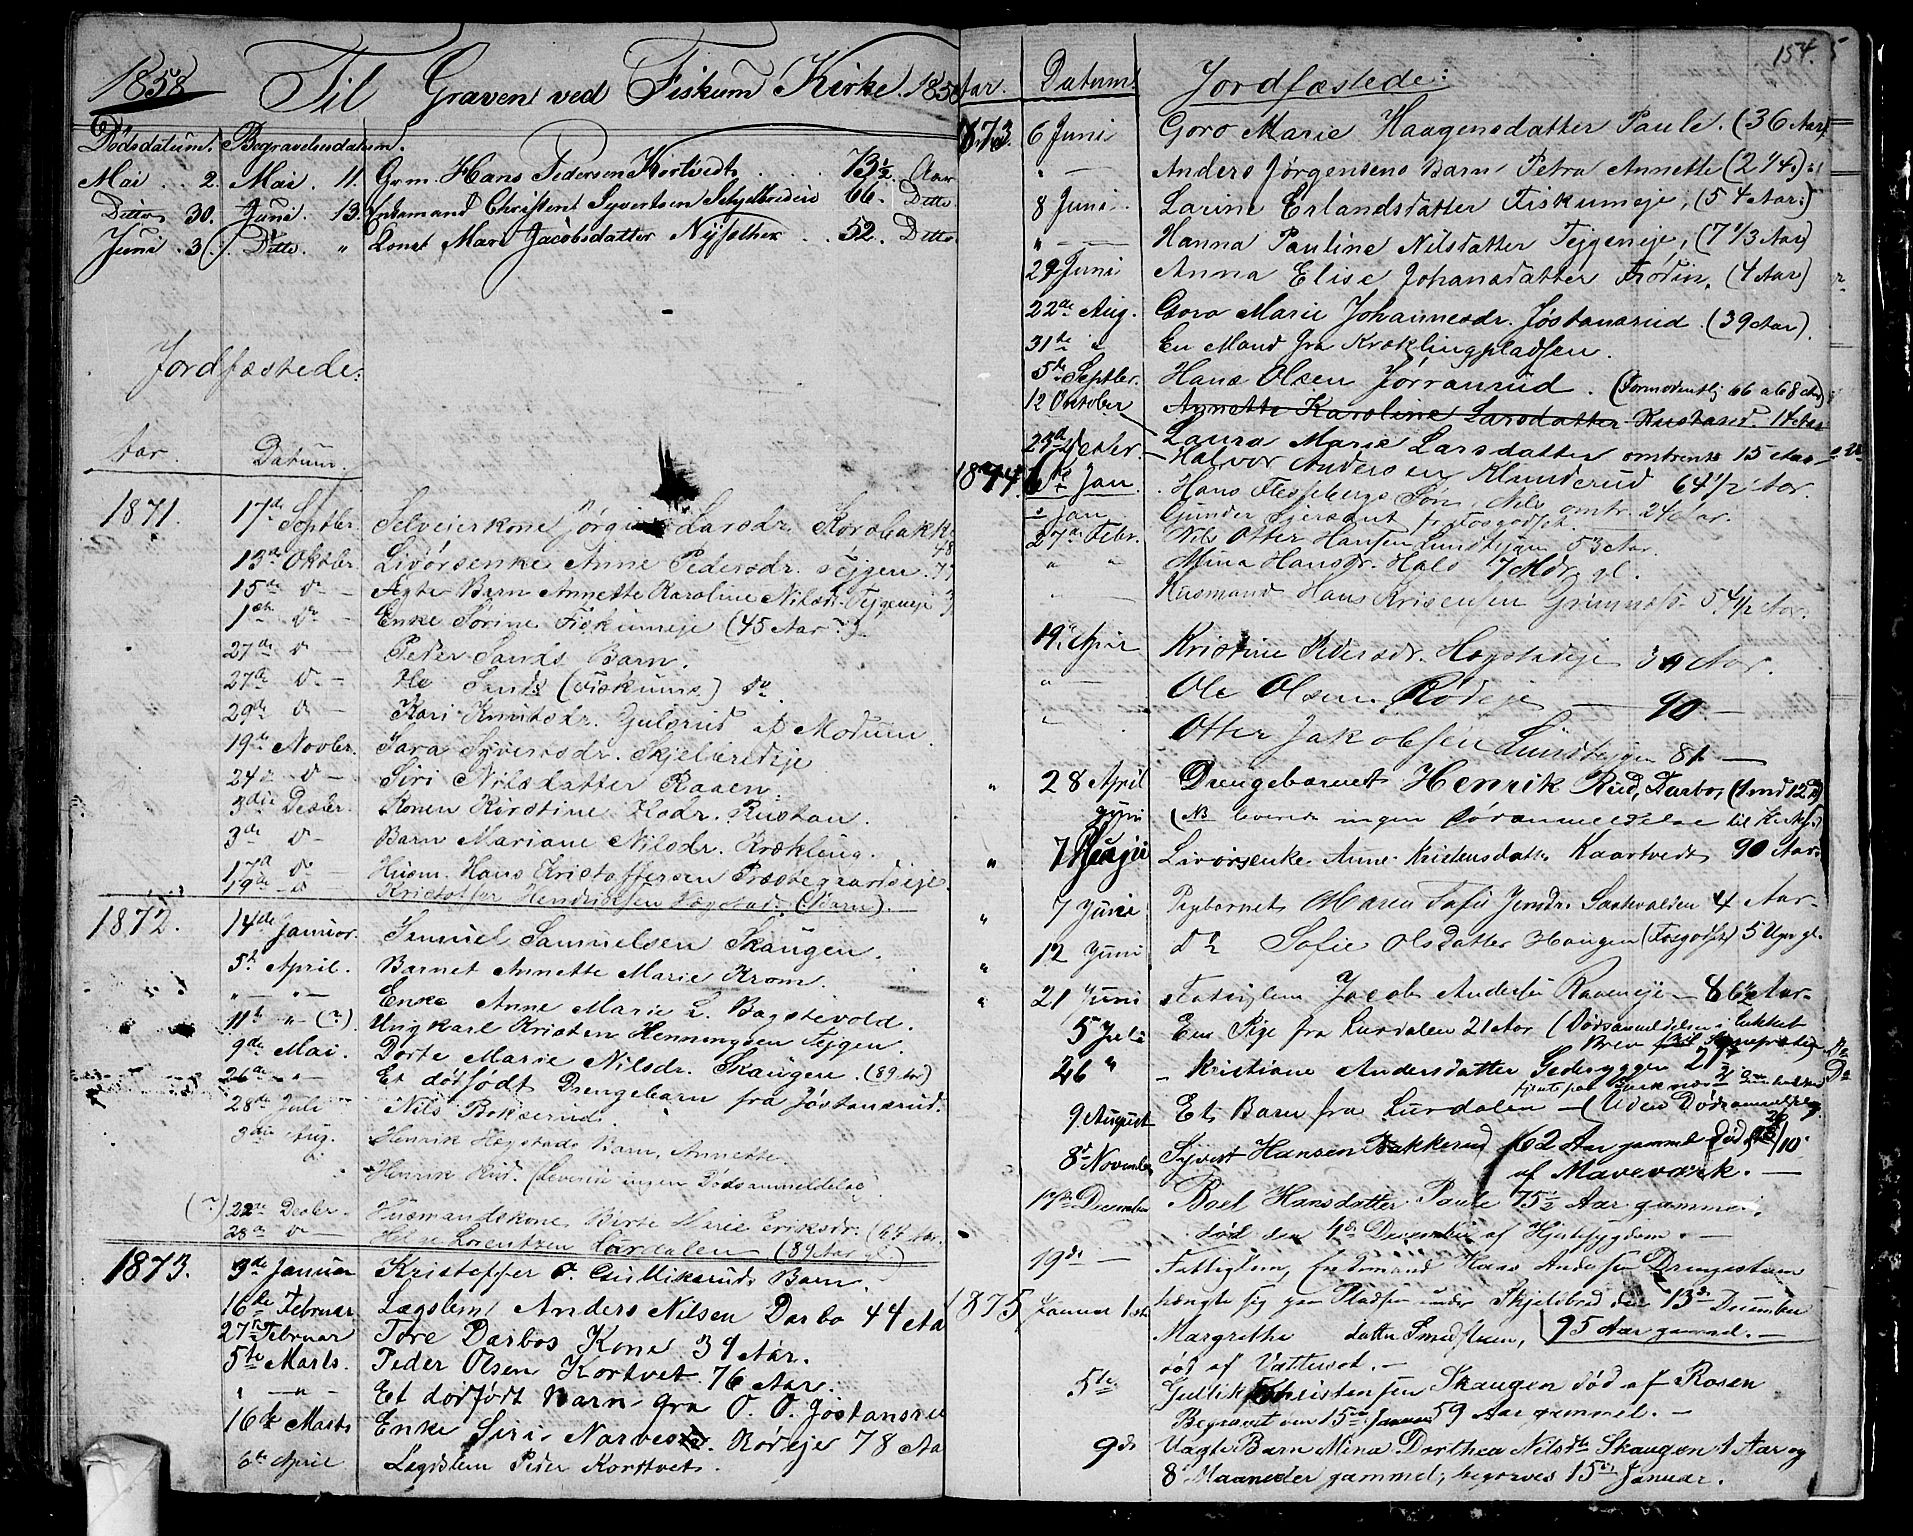 1858 Til Graven ved Fiskum Kirke. 1858
Dødsdatum. Begravelsesdatum.
Mai . . 2. Mai . 11. Grm. Hans Pedersen Kortvedt . . . 73½ Aar
Ditto 30. Juni . 13. Enkemand Christent Syvertsen Skjelbredeie 66. Ditto
Juni . 3. Ditto. " Lonet Mari Jacobsdatter Nysether . . 52. Ditto
Jordfæstede:
Aar. Datum.
1871. 17de Septbr. Selveierkone Jørgine Larsdr. Korsbakke 48
13de Oktobr. Livørsenke Anne Pedersdr. Tejgen. 7
15de do — Ægte Barn Annette Karoline Nilsdr. Tejgeneje 3
1ste do — Enke Sørine Fiskumeje (45 Aar?)
27de do — Peder Sands Barn.
27de do — Ole Sands (Fiskums) do
29de do — Kari Knutsdr. Gulsrud af Modum.
19de Novbr. Sara Syversdr. Skjelbredeje
24de do — Siri Nilsdatter Raaen.
3die Decbr. Konen Kirstine Hodr. Rustan.
3de do — Barn Mariane Nilsdr. Krækling.
17de do — Husm. Hans Kristoffersen Præstegaardseje.
19de — do Kristoffer Hendriksen Høgstads (Barn).
1872. 14de Januar. Samuel Samuelsen Skaugen.
5te April. Barnet Annette Marie Krom.
" — " — Enke Anne Marie L. Bagstevold.
11te " — (?) Ungkarl Kristen Henningsen Tejgen.
9de Mai. Dorte Marie Nilsdr. Skaugen. (89 Aar)
26de " — Et dødfødt Drengebarn fra Jøstansrud.
28de Juli Nils Bakserud.
3die Aug. Henrik Høgstads Barn, Annette.
Henrik Rud. (Leverin ingen Dødsanmeldelse).
(?) 22de Decbr. Husmandskone Birte Marie Eriksdr. (64 Aar.
28de do — Helge Lorentzen Lurdalen — (89 Aar gl.)
1873. 3de Januar Kristoffer O. Gulliksruds Barn.
16de Februar Lægslem Anders Nilsen Darbo 44 Aa
27de Februar Tore Darbos Kone 39 Aar.
5te Marts. Peder Olsen Kortvet 76 Aar.
" — " — Et dødfødt Barn fra O. O. Jøstansru
16de Marts Enke Siri Narvesdr. Rødeje 78 Aa
6te April Lægdslem Peder Kortvet.
154.
Aar. Datum. Jordfæstede:
1873. 6 Juni Goro Marie Haagensdatter Paule. (36 Aar)
" — Anders Jørgensens Barn Petra Annette (2 1/4)
8 Juni. Larine Erlandsdatter Fiskumeje, (54 Aar)
" — — Hanna Pauline Nilsdatter Tejgeneje, (7 1/3 Aar)
29 Juni Anna Elise Johansdatter Frødin, (4 Aar)
22de Aug. Goro Marie Johannesdr. Jøstansrud (39 Aar).
31te " En Mand fra Kræklingpladsen.
5te Septbr. Hans Olsen Jørransrud. (Formodentlig 66 a 68 Aar)
12 Oktober Annette Karoline Larsdatter Rustand. 14 Aar
28de Decbr. — Laura Marie Larsdatter omtrent 15 Aar
1874. 6te Jan. Halvor Andersen Klunderud 64 1/2 Aar.
Hans Flessebergs Søn, Nils omtr. 24 Aar.
" Jan Gunder fr. Fosgodset.
27de Febr. Nils Otter Hansen Lundtejgen 53 Aar.
" " Mina Hansdr. Hals 7 Mdr. gl.
" — Husmand Hans Kristensen Grimnæs 54 1/2 Aar.
19. April Kristine Pedersdr. Høgstadeje 30 Aar.
" — Ole Olsen Rødeje — 90 —
" Otter Jakobsen Lundtejgen 81 —
" 28 April Drengebarnet Henrik Rud, Darbo, (1 md 12 D)
(NB leverede ingen Dødsanmeldelse til
Juni
" 7 Livørsenke Anne Kristensdatter Kaartvedt 90 Aar.
" 7 Juni Pigebarnet Maren Sofie Jensdr. 4 Aar.
" 12 Juni do Sofie Olsdatter Haugen (Fosgodset) 5 Uger gl.
" 21 Juni Fattiglem Jacob Andersen Raaeneje — 86½ Aar.
5 Juli En Pige fra Lurdalen 21 Aar (Dødsanmeldelsen i lukket
Brev til Sognepræsten
26 " — Kristiane Andersdatter Gederyggen
9 August Et Barn fra Lurdalen — (Uden Dødsanmeldelse)
8de November Syvert Hansen Bakkerud 62 Aar gammel død 26/10
af Maveværk. —
17de December Boel Hansdatter Paule 75½ Aar gammel,
død den 4de December af Hjertesygdom. —
19de — Fattiglem, Enkemand Hans Andersen Drengestuen
hængte sig paa Pladsen under Skjelbred den 13de December
1875 Januar 1ste Margrethe datter Smedstuen, 95 Aar gammel. —
død af Vattersot. —
5te Gullik Christensen Skaugen død af Rosen
Begravet den 15de Januar 59 Aar gammel. —
9de Uægte Barn Mina Dorthea Nilsdtr Skaugen 1 Aar og
8 Maaneder gammel, begraves 15de Januar.